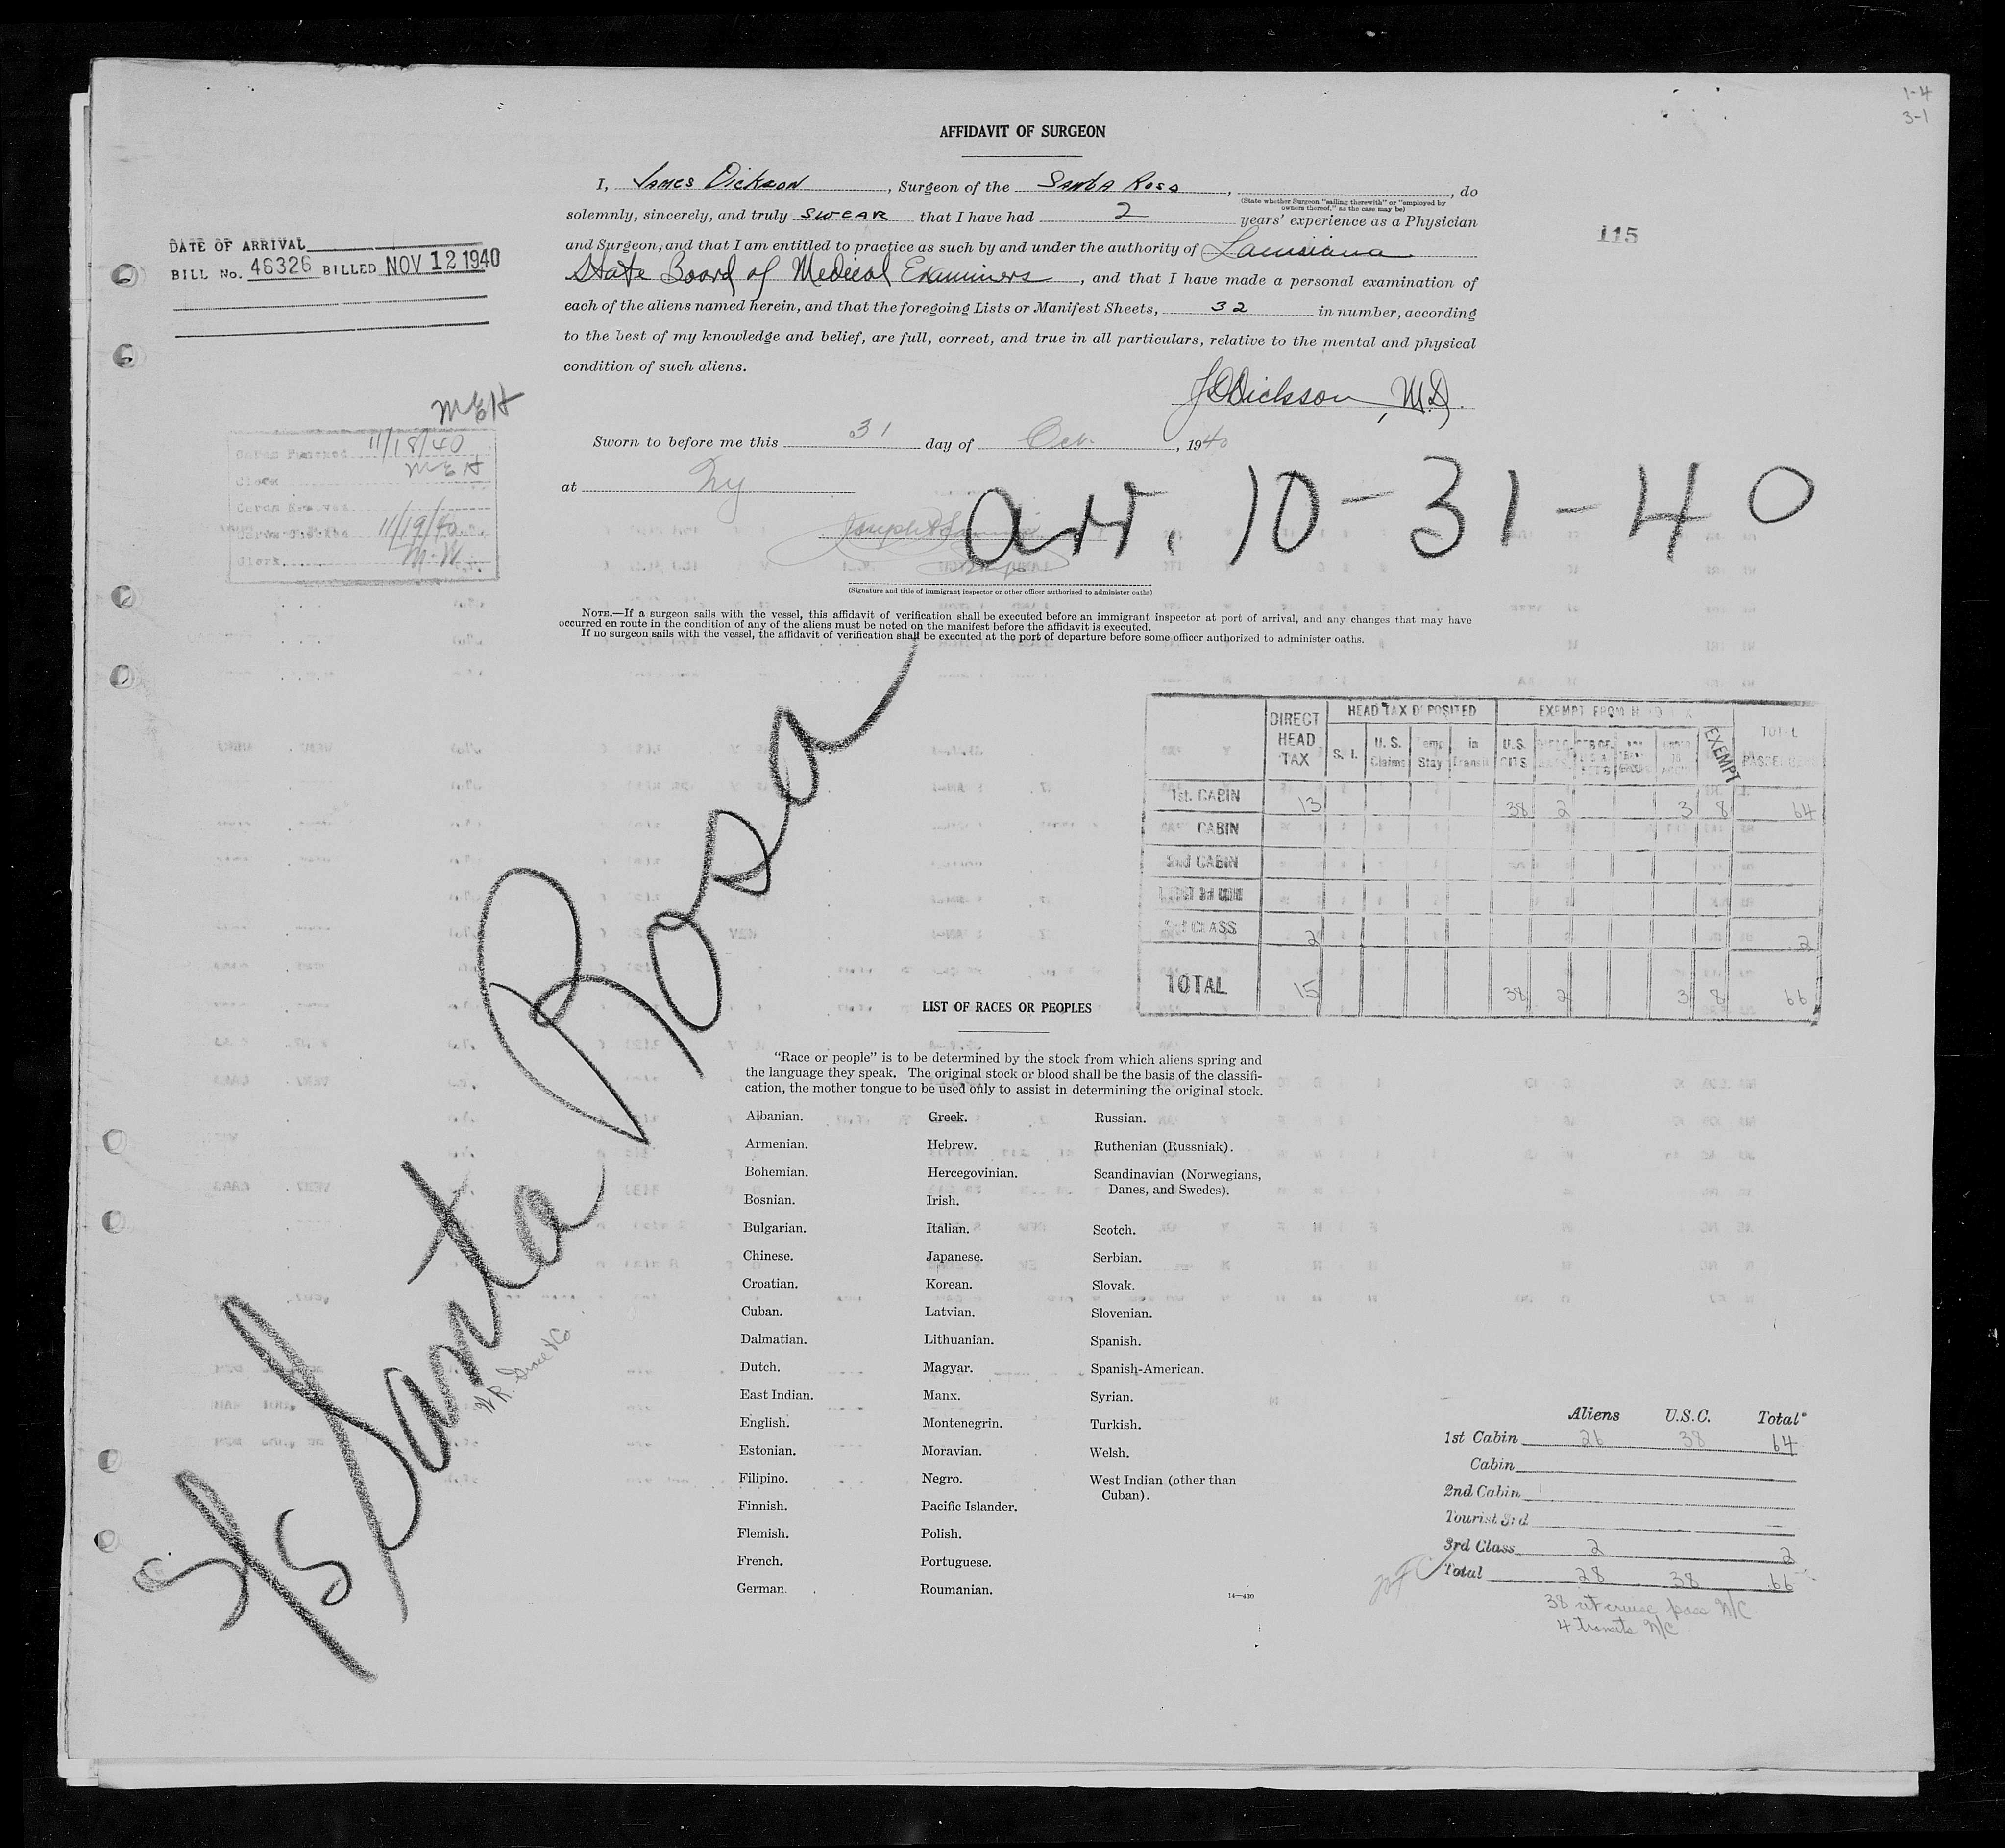 1-4
3-1
AFFIDAVIT OF SURGEON
I, James Dickson, Surgeon of the Santa Rosa, , do
(State whether Surgeon "sailing therewith" or "employed by
owners thereof," as the case may be)
solemnly, sincerely, and truly swear that I have had 2 years' experience as a Physician
and Surgeon, and that I am entitled to practice as such by and under the authority of Louisiana
State Board of Medical Examiners, and that I have made a personal examination of
each of the aliens named herein, and that the foregoing Lists or Manifest Sheets, 32 in number, according
to the best of my knowledge and belief, are full, correct, and true in all particulars, relative to the mental and physical
condition of such aliens.
115
DATE OF ARRIVAL
BILL No. 46326 BILLED NOV 12 1940
JDDickson, M.D.
MEH
11/18/40
Clerk MEH
11/19/40
Clerk M.W.
Sworn to before me this 31 day of Oct., 1940
at Ny
arr. 10-31-40
(Signature and title of immigrant inspector or other officer authorized to administer oaths)
NOTE.—If a surgeon sails with the vessel, this affidavit of verification shall be executed before an immigrant inspector at port of arrival, and any changes that may have
occurred en route in the condition of any of the aliens must be noted on the manifest before the affidavit is executed.
If no surgeon sails with the vessel, the affidavit of verification shall be executed at the port of departure before some officer authorized to administer oaths.
S/S Santa Rosa
W.R. Grace & Co
DIRECT HEAD TAX HEAD TAX DEPOSITED EXEMPT FROM HEAD TAX TOTAL PASSENGERS
S. I. U. S. Claims Temp Stay in Transit U.S. CITS EXEMPT
1st. CABIN 13 38 2 3 8 64
CABIN
2nd CABIN
3rd CLASS 2 2
TOTAL 15 38 2 3 8 66
LIST OF RACES OR PEOPLES
"Race or people" is to be determined by the stock from which aliens spring and
the language they speak. The original stock or blood shall be the basis of the classifi-
cation, the mother tongue to be used only to assist in determining the original stock.
Albanian.
Armenian.
Bohemian.
Bosnian.
Bulgarian.
Chinese.
Croatian.
Cuban.
Dalmatian.
Dutch.
East Indian.
English.
Estonian.
Filipino.
Finnish.
Flemish.
French.
German.
Greek.
Hebrew.
Hercegovinian.
Irish.
Italian.
Japanese.
Korean.
Latvian.
Lithuanian.
Magyar.
Manx.
Montenegrin.
Moravian.
Negro.
Pacific Islander.
Polish.
Portuguese.
Roumanian.
Russian.
Ruthenian (Russniak).
Scandinavian (Norwegians,
Danes, and Swedes).
Scotch.
Serbian.
Slovak.
Slovenian.
Spanish.
Spanish-American.
Syrian.
Turkish.
Welsh.
West Indian (other than
Cuban).
14—430
Aliens U.S.C. Total
1st Cabin 26 38 64
Cabin
2nd Cabin
Tourist 3rd
3rd Class 2 2
Total 28 38 66
38 cruise pass N/C
4 transits N/C